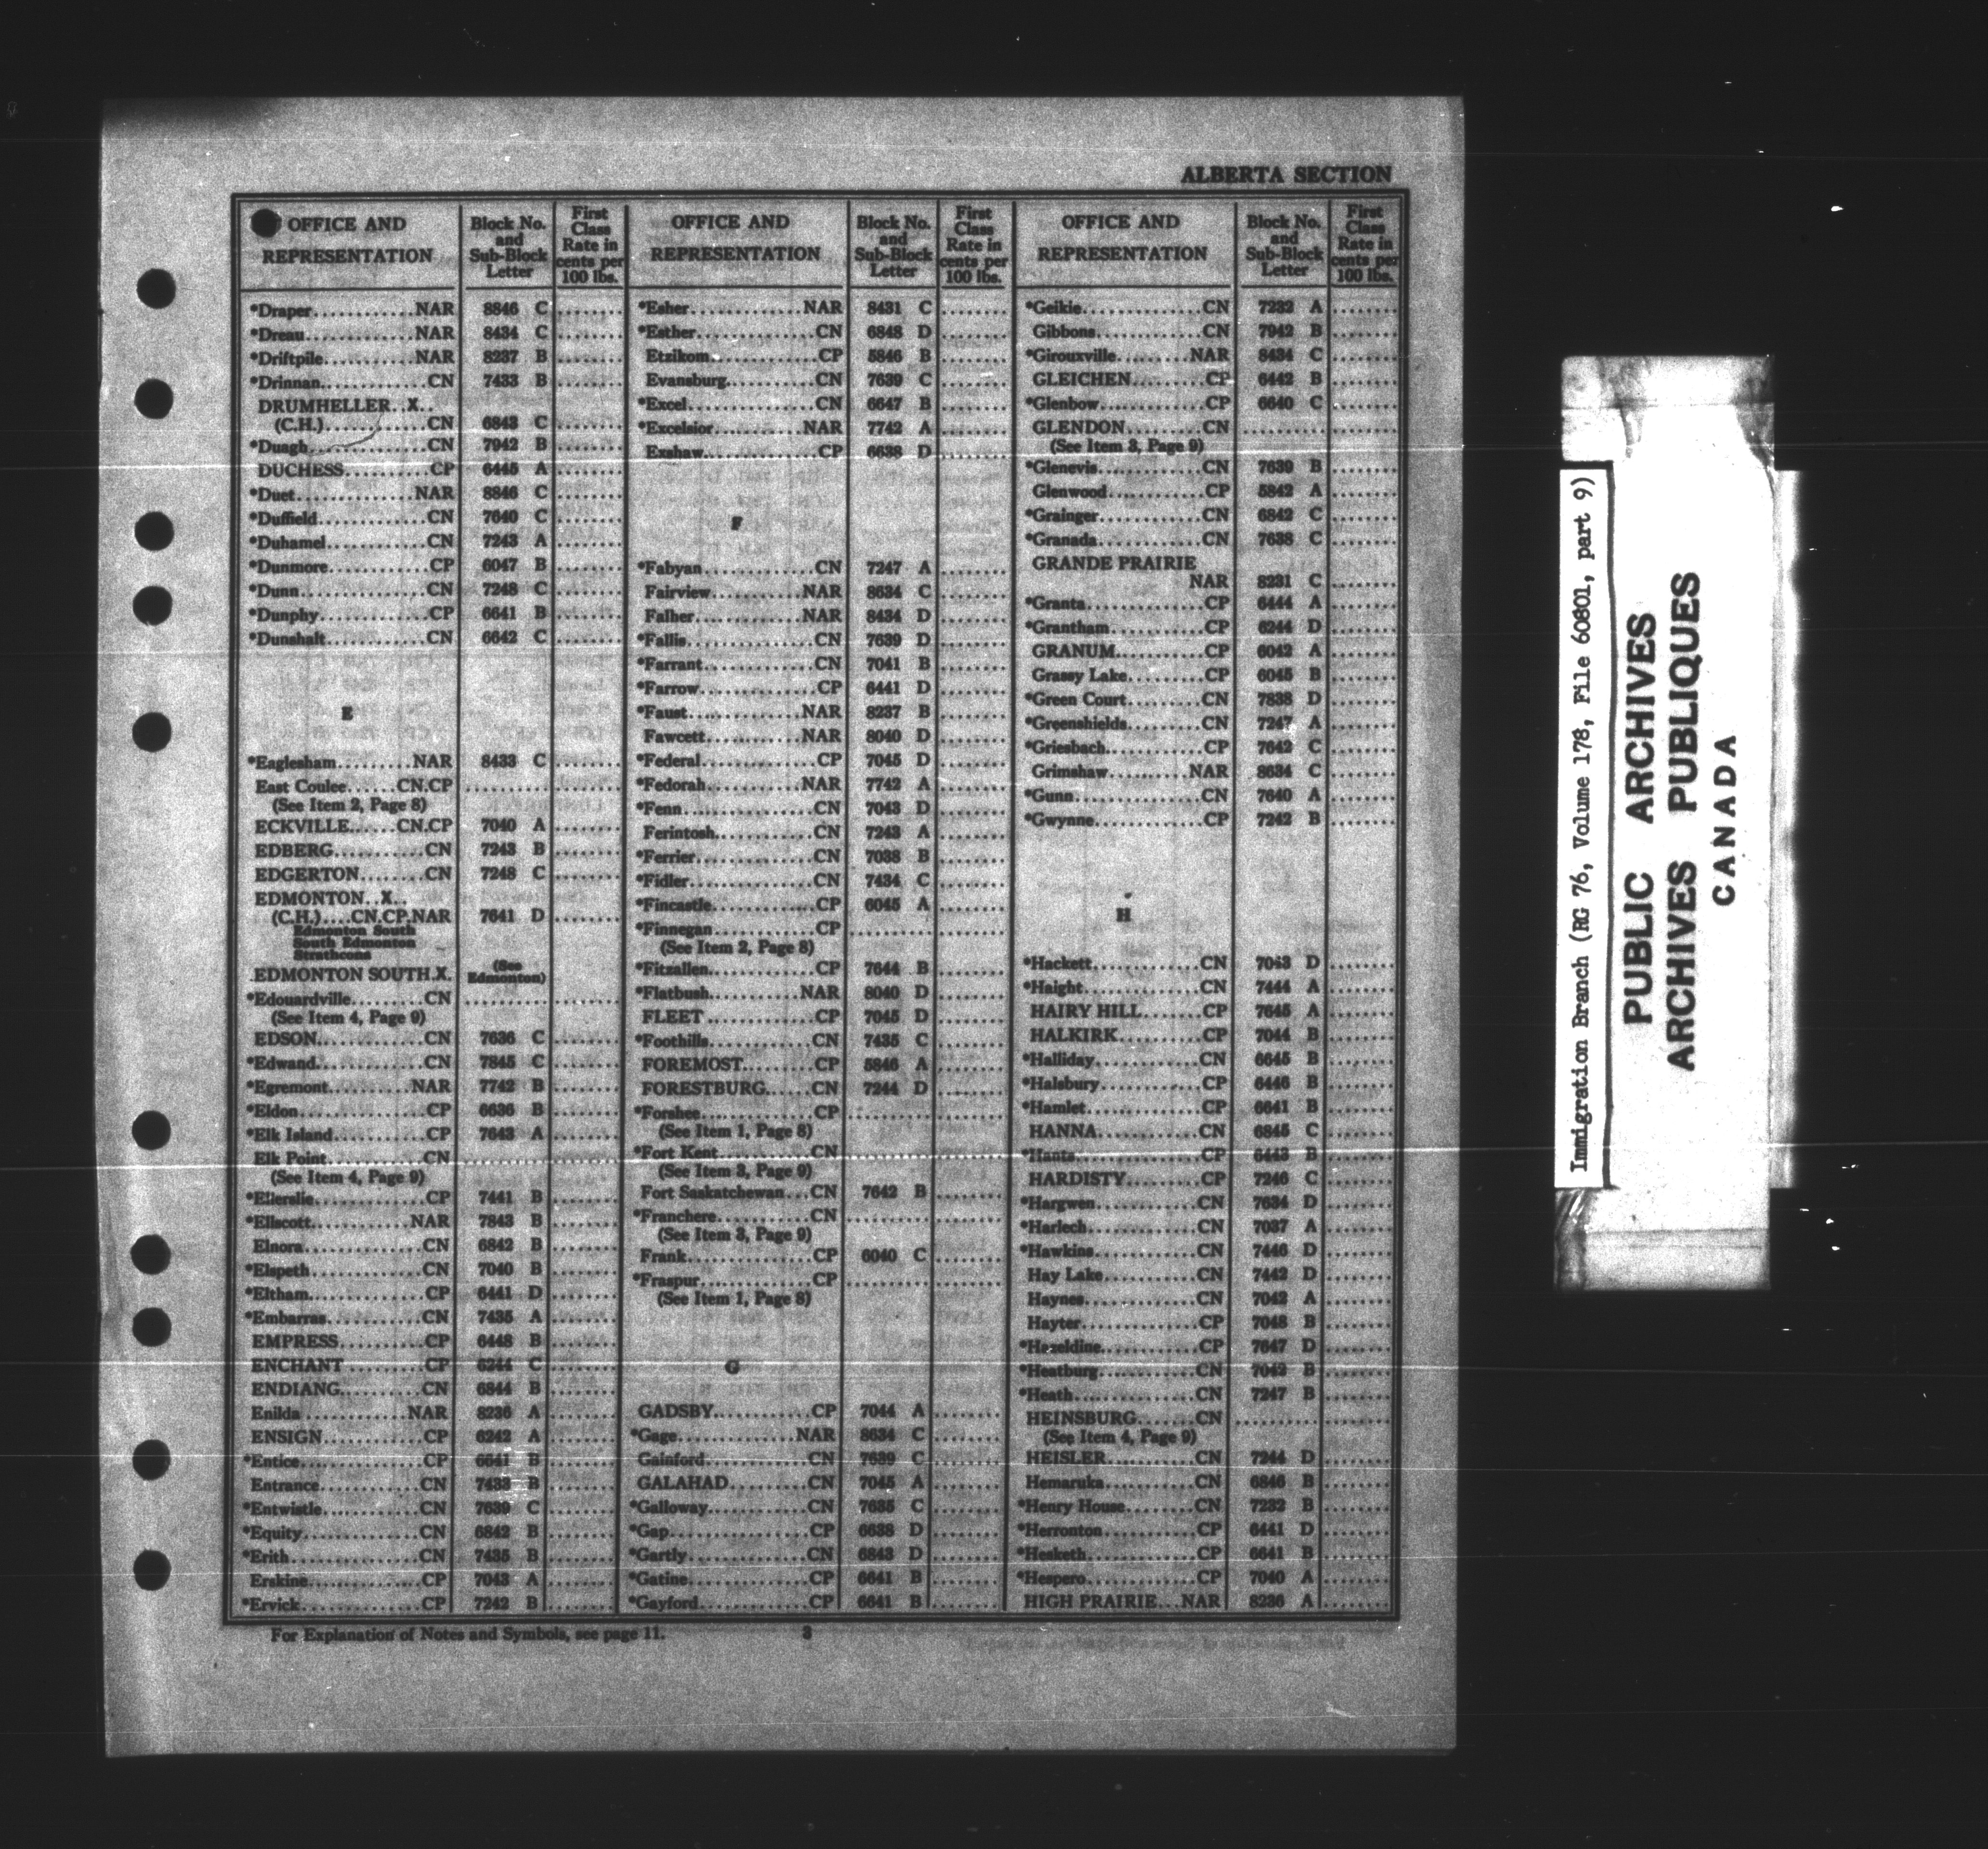 ALBERTA SECTION
OFFICE AND REPRESENTATION | Block No. and Sub-Block Letter | First Class Rate in cents per 100 lbs.
*Draper............NAR 8846 C
*Dreau............NAR 8434 C
*Driftpile..........NAR 8237 B
*Drinnan............CN 7433 B
DRUMHELLER..X..
(C.H.)............CN 6843 C
*Duagh............CN 7942 B
DUCHESS..........CP 6445 A
*Duet..............NAR 8846 C
*Duffield............CN 7640 C
*Duhamel............CN 7243 A
*Dunmore............CP 6047 B
*Dunn..............CN 7248 C
*Dunphy............CP 6641 B
*Dunshalt............CN 6642 C
E
*Eaglesham.........NAR 8433 C
East Coulee......CN.CP
(See Item 2, Page 8)
ECKVILLE......CN.CP 7040 A
EDBERG..........CN 7243 B
EDGERTON........CN 7248 C
EDMONTON..X..
(C.H.)....CN.CP.NAR 7641 D
Edmonton South
South Edmonton
Strathcona
EDMONTON SOUTH.X. (See Edmonton)
*Edouardville.........CN
(See Item 4, Page 9)
EDSON............CN 7636 C
*Edwand............CN 7845 C
*Egremont.........NAR 7742 B
*Eldon..............CP 6636 B
*Elk Island..........CP 7643 A
Elk Point............CN
(See Item 4, Page 9)
*Ellerslie............CP 7441 B
*Ellscott...........NAR 7843 B
Elnora..............CN 6842 B
*Elspeth............CN 7040 B
*Eltham............CP 6441 D
*Embarras............CN 7435 A
EMPRESS..........CP 6448 B
ENCHANT.........CP 6244 C
ENDIANG.........CN 6844 B
Enilda............NAR 8236 A
ENSIGN............CP 6242 A
*Entice..............CP 6641 B
Entrance............CN 7433 B
*Entwistle............CN 7639 C
*Equity..............CN 6842 B
*Erith..............CN 7435 B
Erskine..............CP 7043 A
*Ervick..............CP 7242 B
OFFICE AND REPRESENTATION | Block No. and Sub-Block Letter | First Class Rate in cents per 100 lbs.
*Esher............NAR 8431 C
*Esther............CN 6848 D
Etzikom............CP 5846 B
Evansburg..........CN 7639 C
*Excel..............CN 6647 B
*Excelsior.........NAR 7742 A
Exshaw............CP 6638 D
F
*Fabyan............CN 7247 A
Fairview..........NAR 8634 C
Falher............NAR 8434 D
*Fallis..............CN 7639 D
*Farrant............CN 7041 B
*Farrow............CP 6441 D
*Faust............NAR 8237 B
Fawcett..........NAR 8040 D
*Federal............CP 7045 D
*Fedorah..........NAR 7742 A
*Fenn..............CN 7043 D
Ferintosh..........CN 7243 A
*Ferrier............CN 7038 B
*Fidler..............CN 7434 C
*Fincastle............CP 6045 A
*Finnegan............CP
(See Item 2, Page 8)
*Fitzallen............CP 7644 B
*Flatbush..........NAR 8040 D
FLEET............CP 7045 D
*Foothills............CN 7435 C
FOREMOST.........CP 5846 A
FORESTBURG......CN 7244 D
*Forshee............CP
(See Item 1, Page 8)
*Fort Kent............CN
(See Item 3, Page 9)
Fort Saskatchewan...CN 7642 B
*Franchere..........CN
(See Item 3, Page 9)
Frank..............CP 6040 C
*Fraspur............CP
(See Item 1, Page 8)
G
GADSBY............CP 7044 A
*Gage..............NAR 8634 C
Gainford............CN 7639 C
GALAHAD..........CN 7045 A
*Galloway............CN 7635 C
*Gap................CP 6638 D
*Gartly..............CN 6843 D
*Gatine..............CP 6641 B
*Gayford............CP 6641 B
OFFICE AND REPRESENTATION | Block No. and Sub-Block Letter | First Class Rate in cents per 100 lbs.
*Geikie..............CN 7232 A
Gibbons............CN 7942 B
*Girouxville.........NAR 8434 C
GLEICHEN.........CP 6442 B
*Glenbow............CP 6640 C
GLENDON..........CN
(See Item 3, Page 9)
*Glenevis............CN 7639 B
Glenwood............CP 5842 A
*Grainger............CN 6842 C
*Granada............CN 7638 C
GRANDE PRAIRIE
NAR 8231 C
*Granta..............CP 6444 A
*Grantham............CP 6244 D
GRANUM............CP 6042 A
Grassy Lake..........CP 6045 B
*Green Court.........CN 7838 D
*Greenshields.........CN 7247 A
*Griesbach............CP 7642 C
Grimshaw..........NAR 8634 C
*Gunn..............CN 7640 A
*Gwynne............CP 7242 B
H
*Hackett............CN 7043 D
*Haight..............CN 7444 A
HAIRY HILL.......CP 7645 A
HALKIRK..........CP 7044 B
*Halliday............CN 6645 B
*Halsbury............CP 6446 B
*Hamlet............CP 6641 B
HANNA............CN 6845 C
*Hants..............CP 6443 B
HARDISTY.........CP 7246 C
*Hargwen............CN 7634 D
*Harlech............CN 7037 A
*Hawkins............CN 7446 D
Hay Lake............CN 7442 D
Haynes..............CN 7042 A
Hayter..............CP 7048 B
*Hazeldine............CP 7647 D
*Heatburg............CN 7042 B
*Heath..............CN 7247 B
HEINSBURG.......CN
(See Item 4, Page 9)
HEISLER..........CN 7244 D
Hemaruka............CN 6846 B
*Henry House.........CN 7232 B
*Herronton............CP 6441 D
*Hesketh............CP 6641 B
*Hespero............CP 7040 A
HIGH PRAIRIE...NAR 8236 A
For Explanation of Notes and Symbols, see page 11.
3
Immigration Branch (RG 76, Volume 178, File 60801, part 9)
PUBLIC ARCHIVES
ARCHIVES PUBLIQUES
CANADA